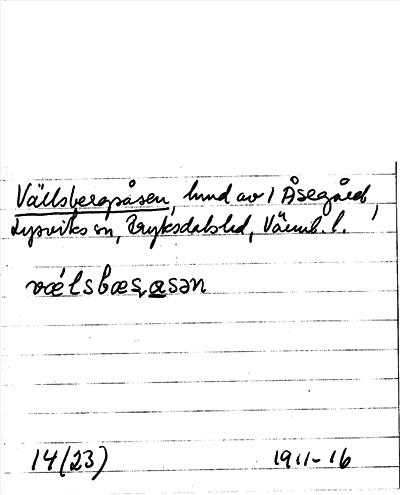 Vällsbergsåsen, lund av 1 Åsegård,
Lysviks sn, Fryksdals hd, Värml. l.
vǽlsbæs,asən
14(23) 1911-16